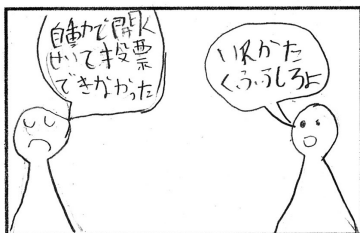 自動で開く
せいで投票
できなかった
いれかた
くふうしろよ